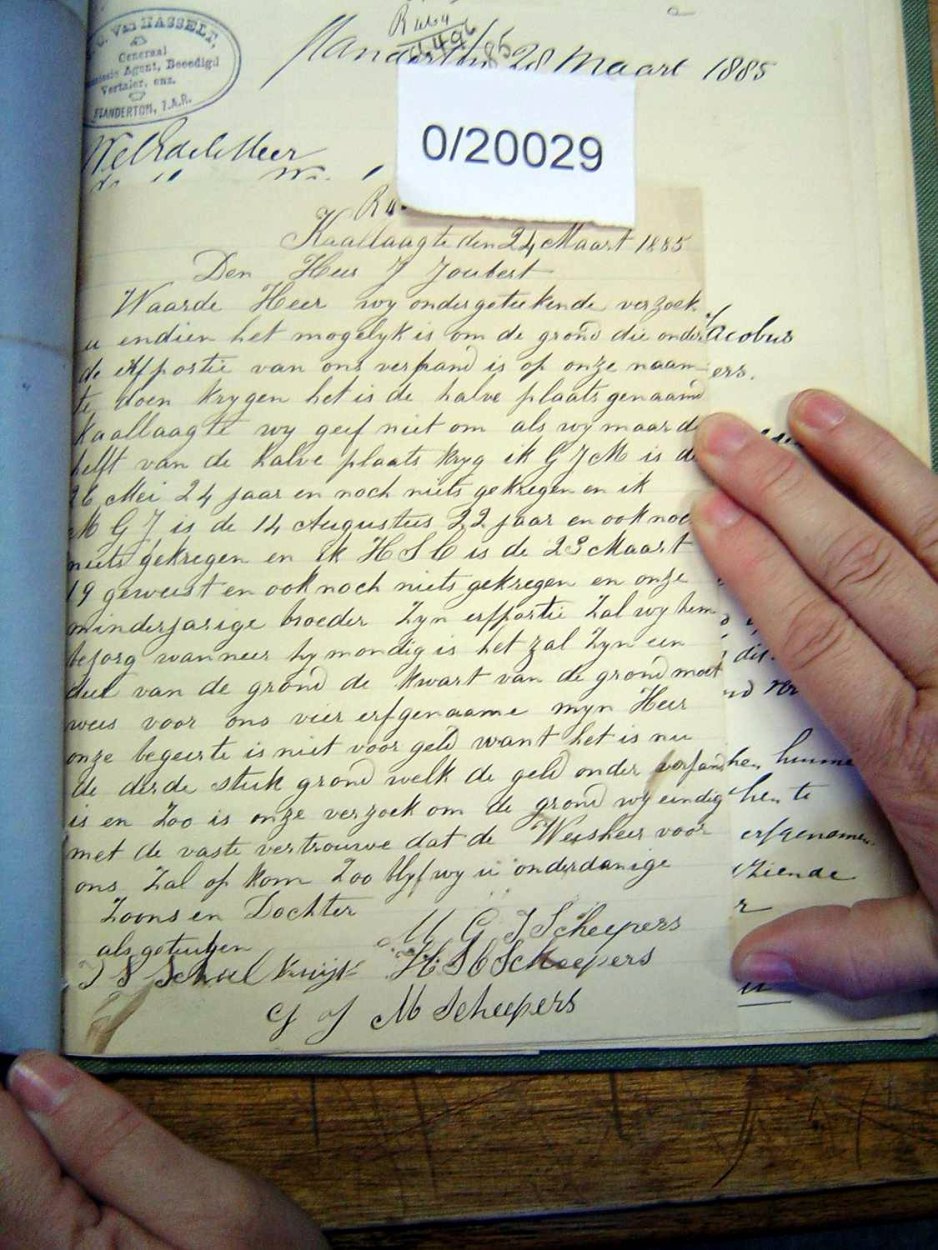 VAN HASSELT,
Generaal
Agent, Beeedigd
Vertaler, enz.
STANDERTON, Z.A.R.
28 Maart 1885
WelEdele Heer
0/20029
Kaallaagte den 24 Maart 1885
Den Heer J Joubert
Waarde Heer wy ondergeteekende verzoek
u endien het mogelyk is om de grond die onder
de erfportie van ons verpand is op onze naam
te doen krygen het is de halve plaats genaamd
Kaallaagte wy geef niet om als wy maar de
helft van de halve plaats kryg ik G J M is de
26 Mei 24 jaar en noch niets gekregen en ik
M G J is de 14 Augustus 22 jaar en ook noch
niets gekregen en ik H S C is de 23 Maart
19 geweest en ook noch niets gekregen en onze
minderjarige broeder Zyn erfportie Zal wy hem
besorg wanneer hy mondig is het zal Zyn een
deel van de grond de kwart van de grond moet
wees voor ons vier erfgenaame myn Heer
onze begeerte is niet voor geld want het is nu
de derde stuk grond welk de geld onder verpand
is en Zoo is onze verzoek om de grond wy eindig
met de vaste vertrouwe dat de Weesheer voor
ons Zal op kom Zoo blyf wy u onderdanige
Zoons en Dochter
als getuigen
M G J Scheepers
H S C Scheepers
G J M Scheepers
Jacobus
ers.
hunne
hen te
erfgenamen
ziende